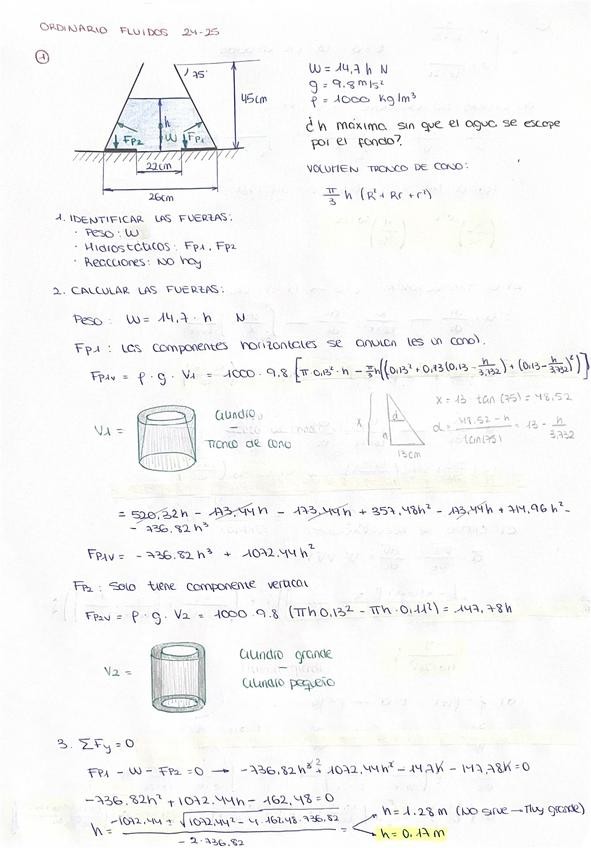 ORDINARIO FLUIDOS 24-25
1
75°
45cm
h
W
FP2
FP1
22cm
26cm
W = 14,7 h N
g = 9.8 m/s²
ρ = 1000 kg/m³
¿h máxima sin que el agua se escape
por el fondo?
VOLUMEN TRONCO DE CONO:
π/3 h (R² + Rr + r²)
1. IDENTIFICAR LAS FUERZAS:
· Peso: W
· Hidrostáticas: FP1, FP2
· Reacciones: NO hay
2. CALCULAR LAS FUERZAS:
Peso: W = 14,7 · h N
FP1: Las componentes horizontales se anulan (es un cono).
FP1V = ρ · g · V1 = 1000 · 9.8 [π 0.13² · h - π/3 h (0.13² + 0.13(0.13 - h/3,732) + (0.13 - h/3,732)²)]
V1 =
Cilindro
-
Tronco de cono
x
h
d
13cm
x = 13 tan(75) = 48,52
d = (48.52 - h)/tan(75) = 13 - h/3,732
= 520,32h - 173,44h - 173,44h + 357,48h² - 173,44h + 714,96h² -
- 736.82h³
FP1V = -736.82h³ + 1072,44h²
FP2: Solo tiene componente vertical
FP2V = ρ · g · V2 = 1000 · 9.8 (πh 0.13² - πh · 0.11²) = 147,78h
V2 =
Cilindro grande
-
Cilindro pequeño
3. ΣFy = 0
FP1 - W - FP2 = 0 → -736,82h³ + 1072,44h² - 14,7h - 147,78h = 0
-736.82h² + 1072,44h - 162,48 = 0
h = (-1072,44 ± √(1072,44² - 4 · 162,48 · 736.82))/(-2 · 736.82) =
h = 1.28 m (No sirve → Muy grande)
h = 0.17 m